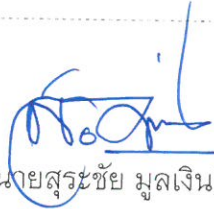 นายสุระชัย มูลเงิน